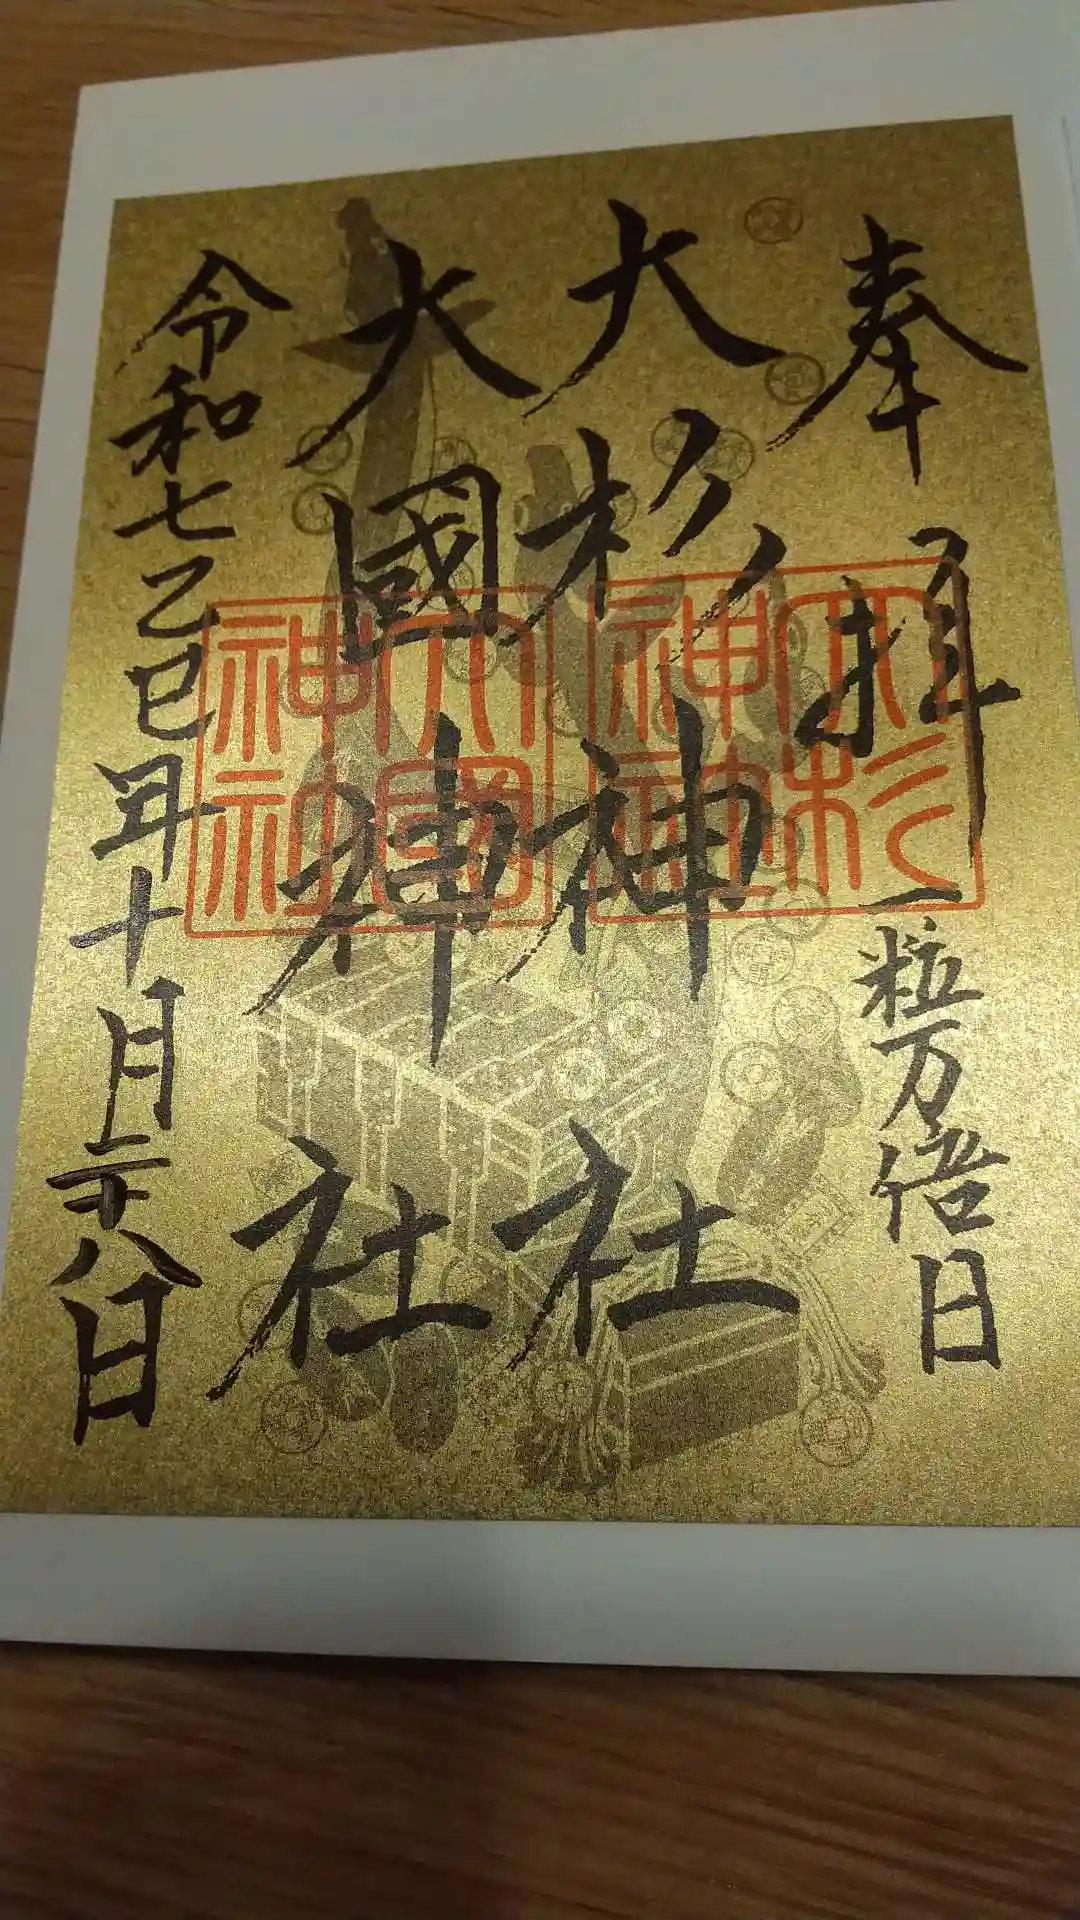 奉拝
一粒万倍日
大杉神社
大國神社
令和七乙巳年十月二十八日
大杉神社
大国神社